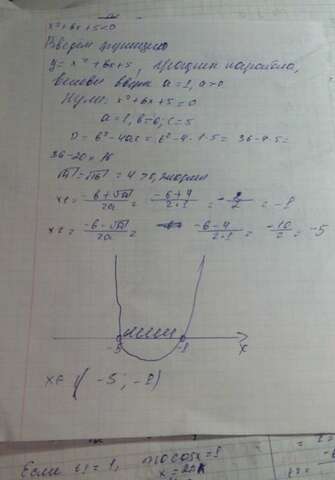 x²+6x+5<0
Введем функцию
y = x² + 6x+5, график парабола,
ветви вверх a=1, a>0
Нули: x²+6x+5=0
a=1, b=6, c=5
D = b²-4ac = 6²-4·1·5 = 36-4·5=
36-20=16
√D=√16 = 4 >0, 2 корня
x1= -6+√D/2a = -6+4/2·1 = -2/2 = -1
x2= -6-√D/2a = -6-4/2·1 = -10/2 = -5
-5 -1 x
x∈ (-5; -1)
Если a=1, то cosx=1